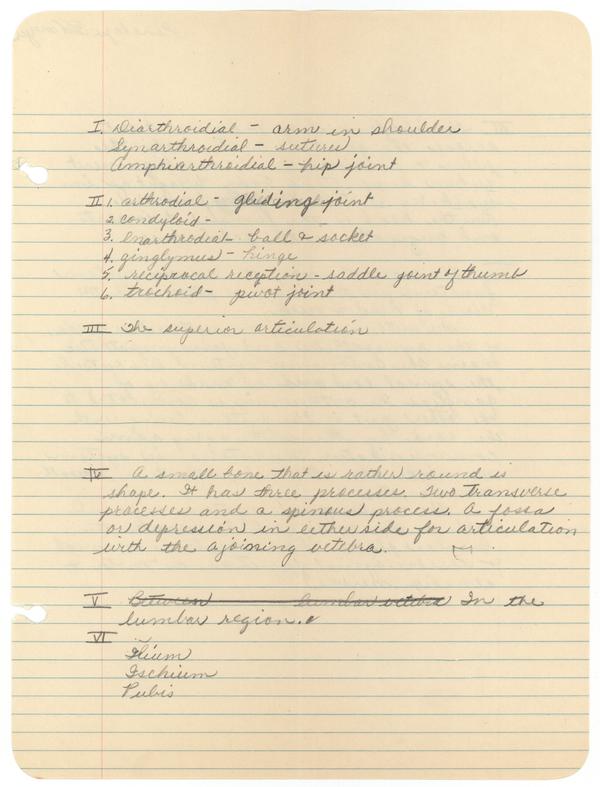 I. Diarthroidial - arm in shoulder
Synarthroidial - sutures
Amphiarthroidial - hip joint
II 1. arthrodial - gliding joint
2. condyloid -
3. Enarthrodial - ball & socket
4. ginglymus - hinge
5. reciprocal reception - saddle joint of thumb
6. trochoid - pivot joint
III The superior articulation
IV A small bone that is rather round is
shape. It has three processes. Two transverse
processes and a spinous process. A fossa
or depression in either side for articulation
with the ajoining vetebra.
V Between lumbar vetebra In the
lumbar region.
VI
Ilium
Ischium
Pubis